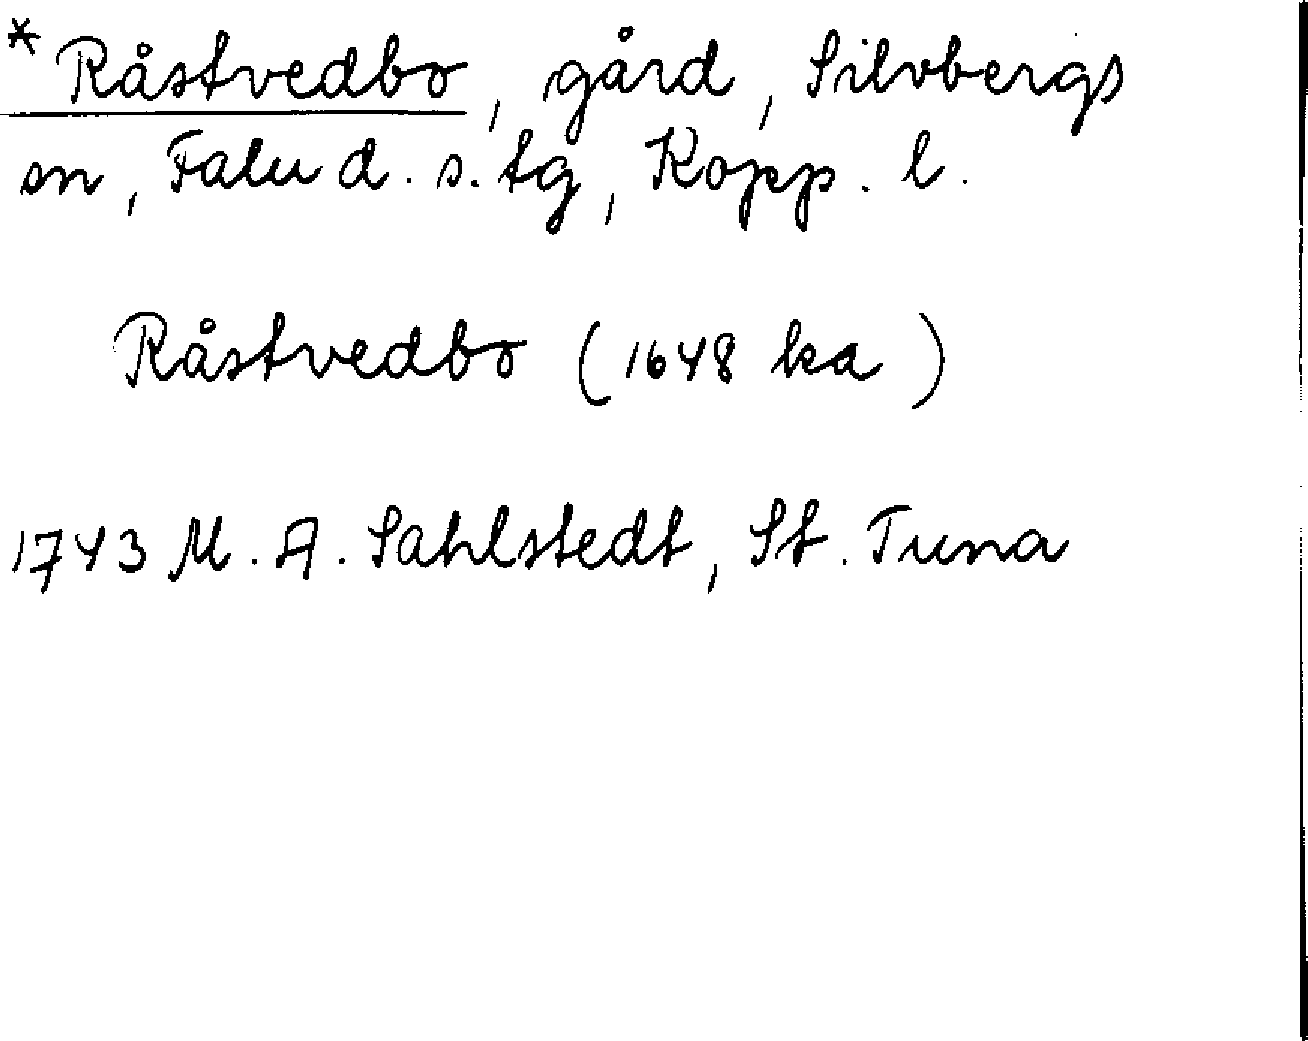 * Råstvedbo, gård, Silvbergs
sn, Falu d. s. tg, Kopp. l.
Råstvedbo (1648 ka)
1743 M. A. Sahlstedt, St. Tuna